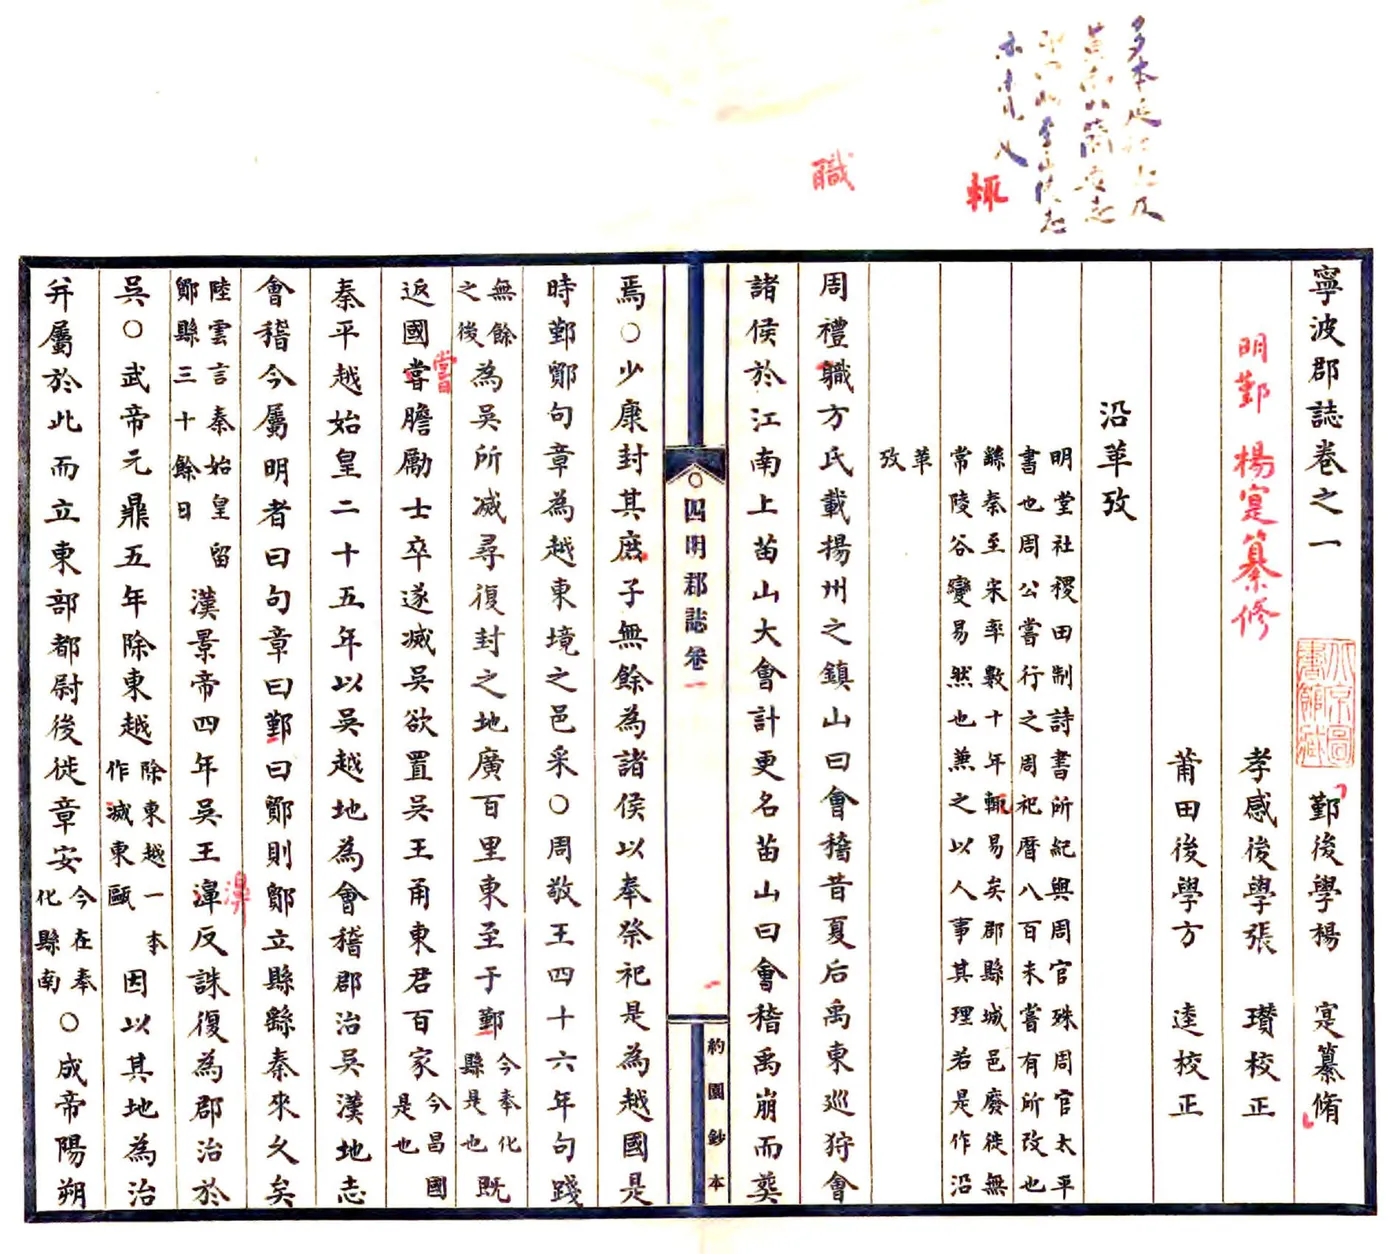 寧波郡誌卷之一 鄞後學楊 寔纂脩
明鄞 楊寔纂修
孝感後學張 瓚校正
莆田後學方 逵校正
沿革攷
明堂社稷田制詩書所紀與周官殊周官太平
書也周公嘗行之周祀曆八百未嘗有所攷也
繇秦至宋率數十年輒易矣郡縣城邑廢徙無
常陵谷變易然也蕪之以人事其理若是作沿
革
攷
周禮職方氏載揚州之鎮山曰會稽昔夏后禹東巡狩會
諸侯於江南上苗山大會計更名苗山曰會稽禹崩而葬
四明郡誌卷一
約園鈔本
焉○少康封其庶子無餘為諸侯以奉祭祀是為越國是
時鄞鄮句章為越東境之邑采○周敬王四十六年句踐
無餘
之後
為吳所滅尋復封之地廣百里東至于鄞
今奉化
縣是也
既
返國嘗膽勵士卒遂滅吳欲置吳王甬東君百家
今昌國
是也
秦平越始皇二十五年以吳越地為會稽郡治吳漢地志
會稽今屬明者曰句章曰鄞曰鄮則鄮立縣繇秦來久矣
陸雲言秦始皇留
鄮縣三十餘日
漢景帝四年吳王濞反誅復為郡治於
吳○武帝元鼎五年除東越
除東越一本
作滅東甌
因以其地為治
并屬於此而立東部都尉後徙章安
今在奉
化縣南
○成帝陽朔
職
輒
嘗
濞
北京圖
書館藏